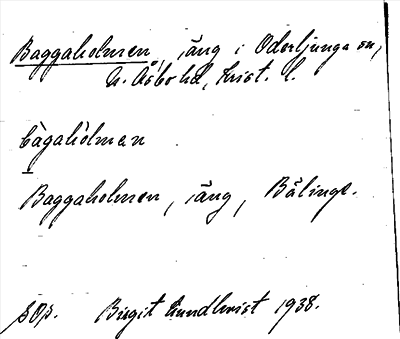 Baggaholmen, äng i Oderljunga sn,
N. Åsbo hd, Krist. l.
bàgahòlmen
Baggaholmen, äng, Bälinge.
SOp. Birgit Lundkvist 1938.